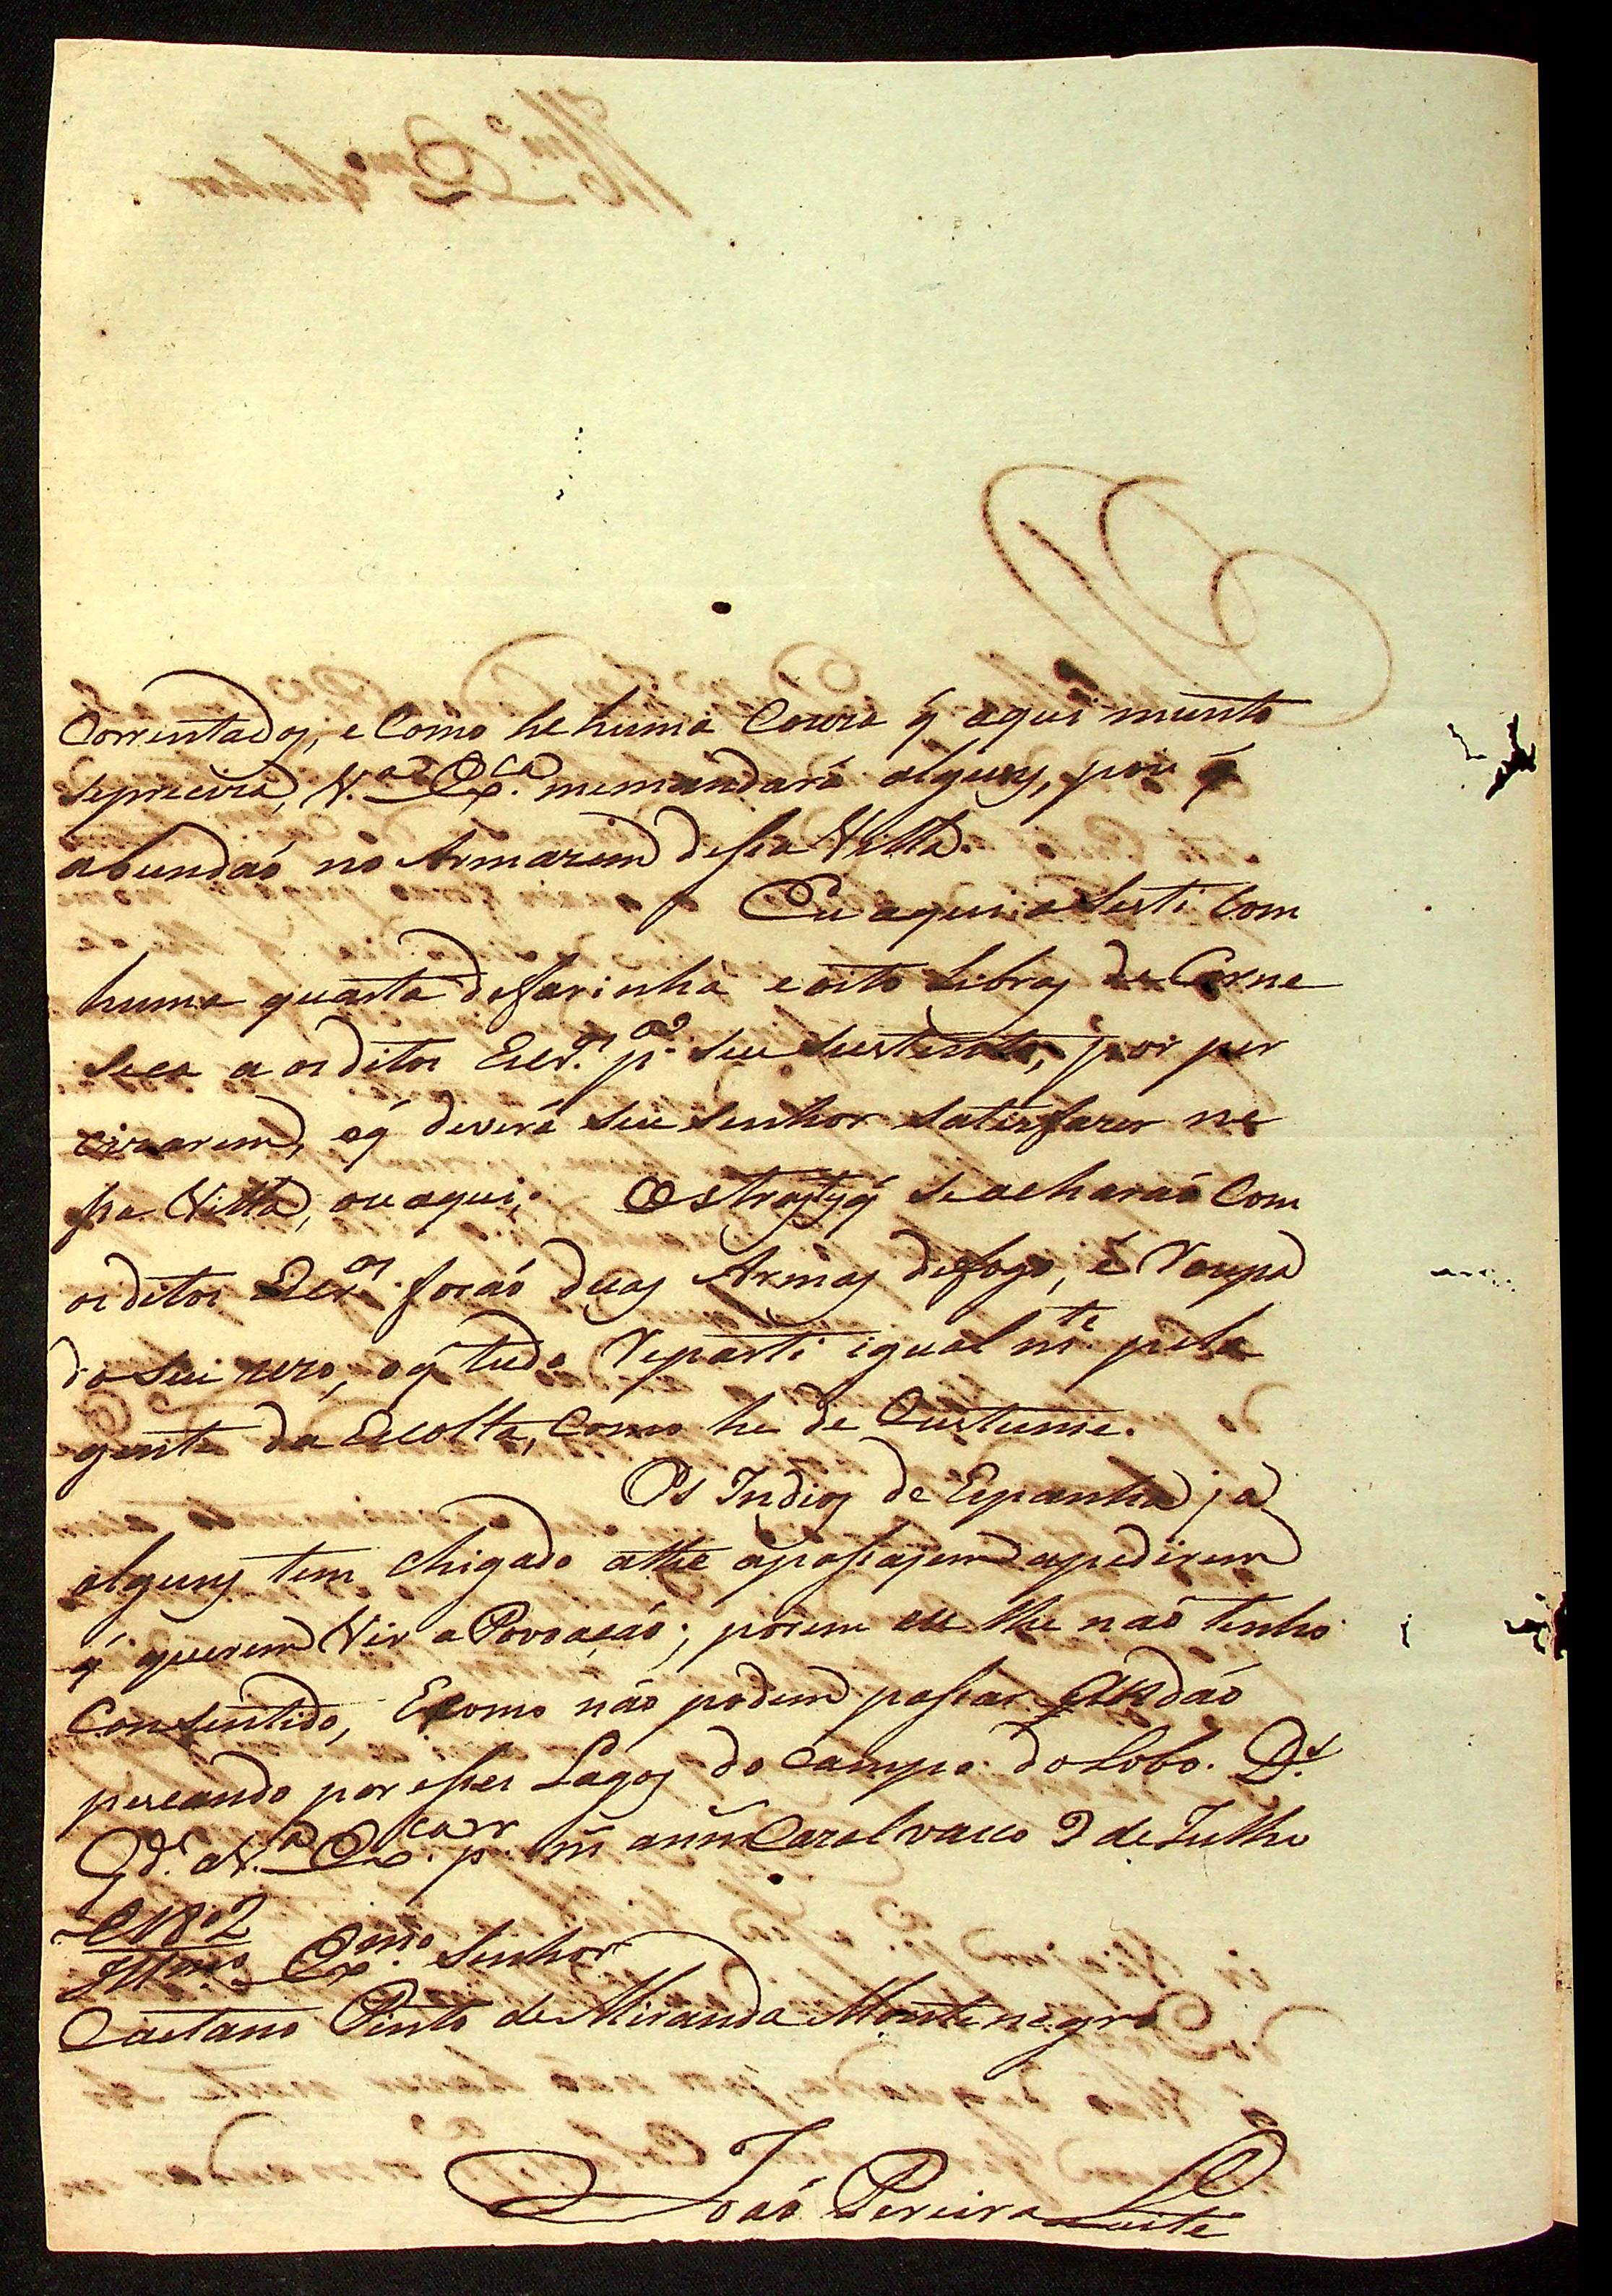 Correntados, e Como he huma Couza q̃ aqui munto
Sepreciza, V.ª Ex.ca memandará alguns, pois q̃
abundaõ no Armazem desta Villa.
Eu aqui asisti Com
huma quarta defarinha e oito Libras de Carne
Seca a os ditos Escr.os p.ª seu sustento, por per
cizarem, oq̃ deverá seu Senhor satisfazer ne
ssa Villa, ou aqui; Os trastes q̃ se acharaõ Com
os ditos Escr.os foraõ duas Armas defogo, e Roupa
do seu uzo, oq̃ tudo Reparti igual m.te pela
gente da Escolta, Como he de Custume.
Os Indios de Espanha ja
alguns tem chigado athe apassajem apedirem
q̃ querem Vir a Povoaçaõ; porem eu lhe naõ tenho
Consentido, Ecomo não podem passar andaõ
pescando por esses Lagos do Campo do Lobo. D.s
G.de a V.ª Ex.ca p.r m̃ ann Cazalvasco 9 de Julho
de 1802
Illmo Ex.mo Senhor
Caetano Pinto de Miranda Montenegro
Joaõ Pereira Leite